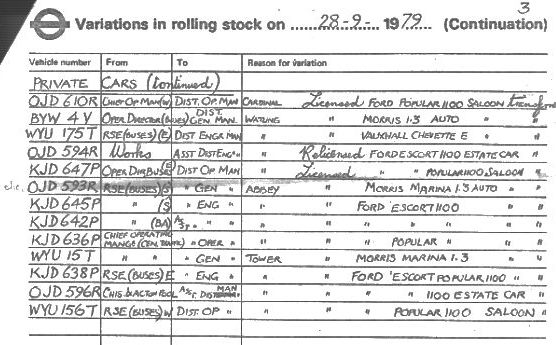 3
Variations in rolling stock on ........28-9-.... 1979 (Continuation)
Vehicle number From To Reason for variation
PRIVATE CARS (Continued)
OJD 610R CHIEF OP MAN (W) DIST. OP. MAN CARDINAL Licensed FORD POPULAR 1100 SALOON transferred
BYW 4 Y OPER DIRECTOR (BUSES) DIST. GEN MAN. WATLING " MORRIS 1.3 AUTO " "
WYU 175T RSE (BUSES) (E) DIST ENGR MAN " " VAUXHALL CHEVETTE E " "
OJD 594R Works ASST DIST ENG " " Relicensed FORD ESCORT 1100 ESTATE CAR "
KJD 647P OPER DIR BUSES (E) DIST OP MAN " Licensed " " POPULAR 1100 SALOON "
OJD 593R RSE (BUSES) (S) " GEN " ABBEY " MORRIS MARINA 1.3 AUTO " "
KJD 645P " (S) " ENG " " " FORD ESCORT 1100 " "
KJD 642P " (BA) " " " " " " "
KJD 636P CHIEF OPERATING MANGR (CEN. ) " OPER " " " " POPULAR " "
WYU 15T " " GEN " TOWER " MORRIS MARINA 1.3 " "
KJD 638P RSE (BUSES) E " ENG " " " FORD ESCORT POPULAR 1100 " "
OJD 596R CHIS. & ACTON DIST. MAN " " " " 1100 ESTATE CAR "
WYU 156T RSE (BUSES) W DIST. OP " " " " POPULAR 1100 SALOON "